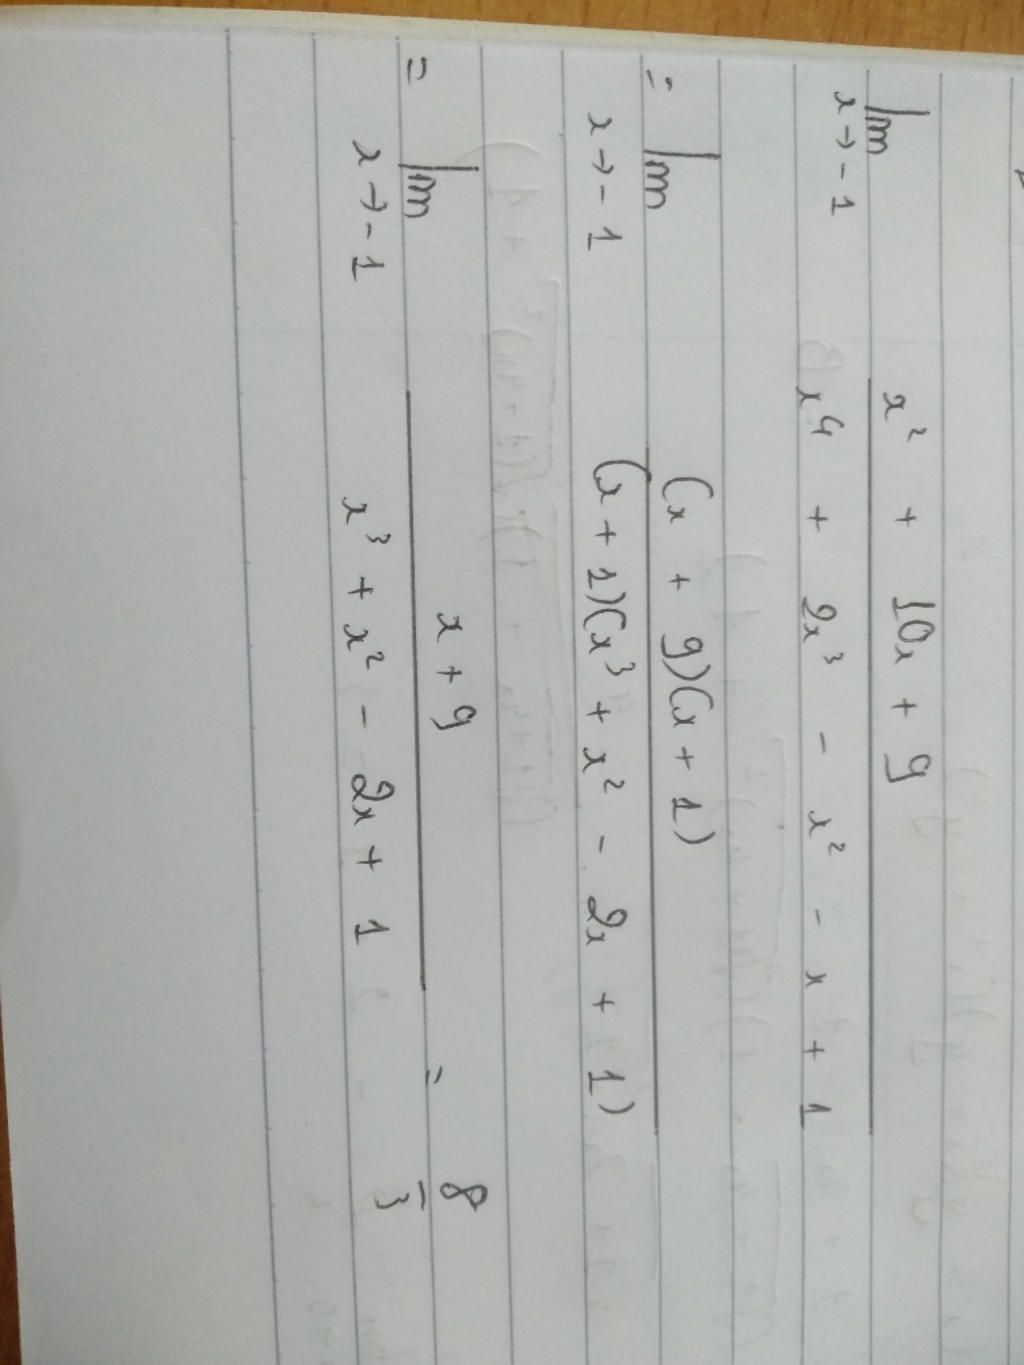 lim x² + 10x + 9
x→-1 x⁴ + 2x³ - x² - x + 1
= lim (x + 9)(x + 1)
x→-1 (x + 1)(x³ + x² - 2x + 1)
= lim x + 9 = 8
x→-1 x³ + x² - 2x + 1 3